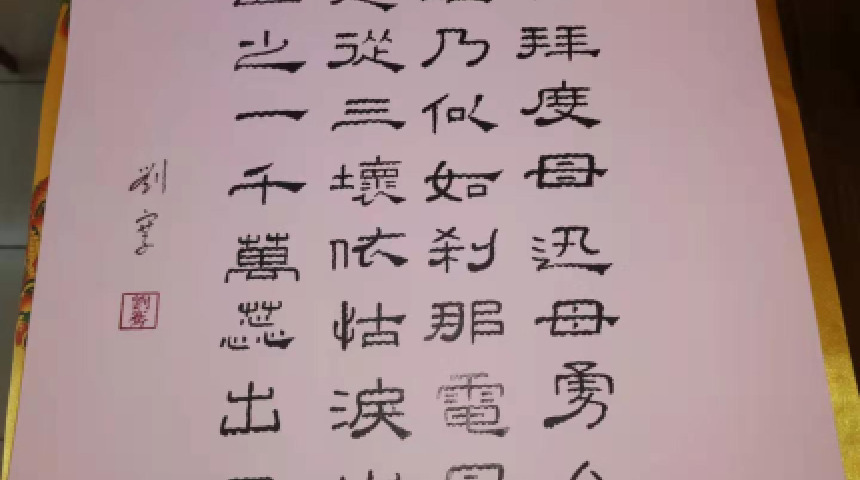 拜度母迅母勇
乃似如刹那電
從三壞依怙淚
之一千萬蕊出
劉